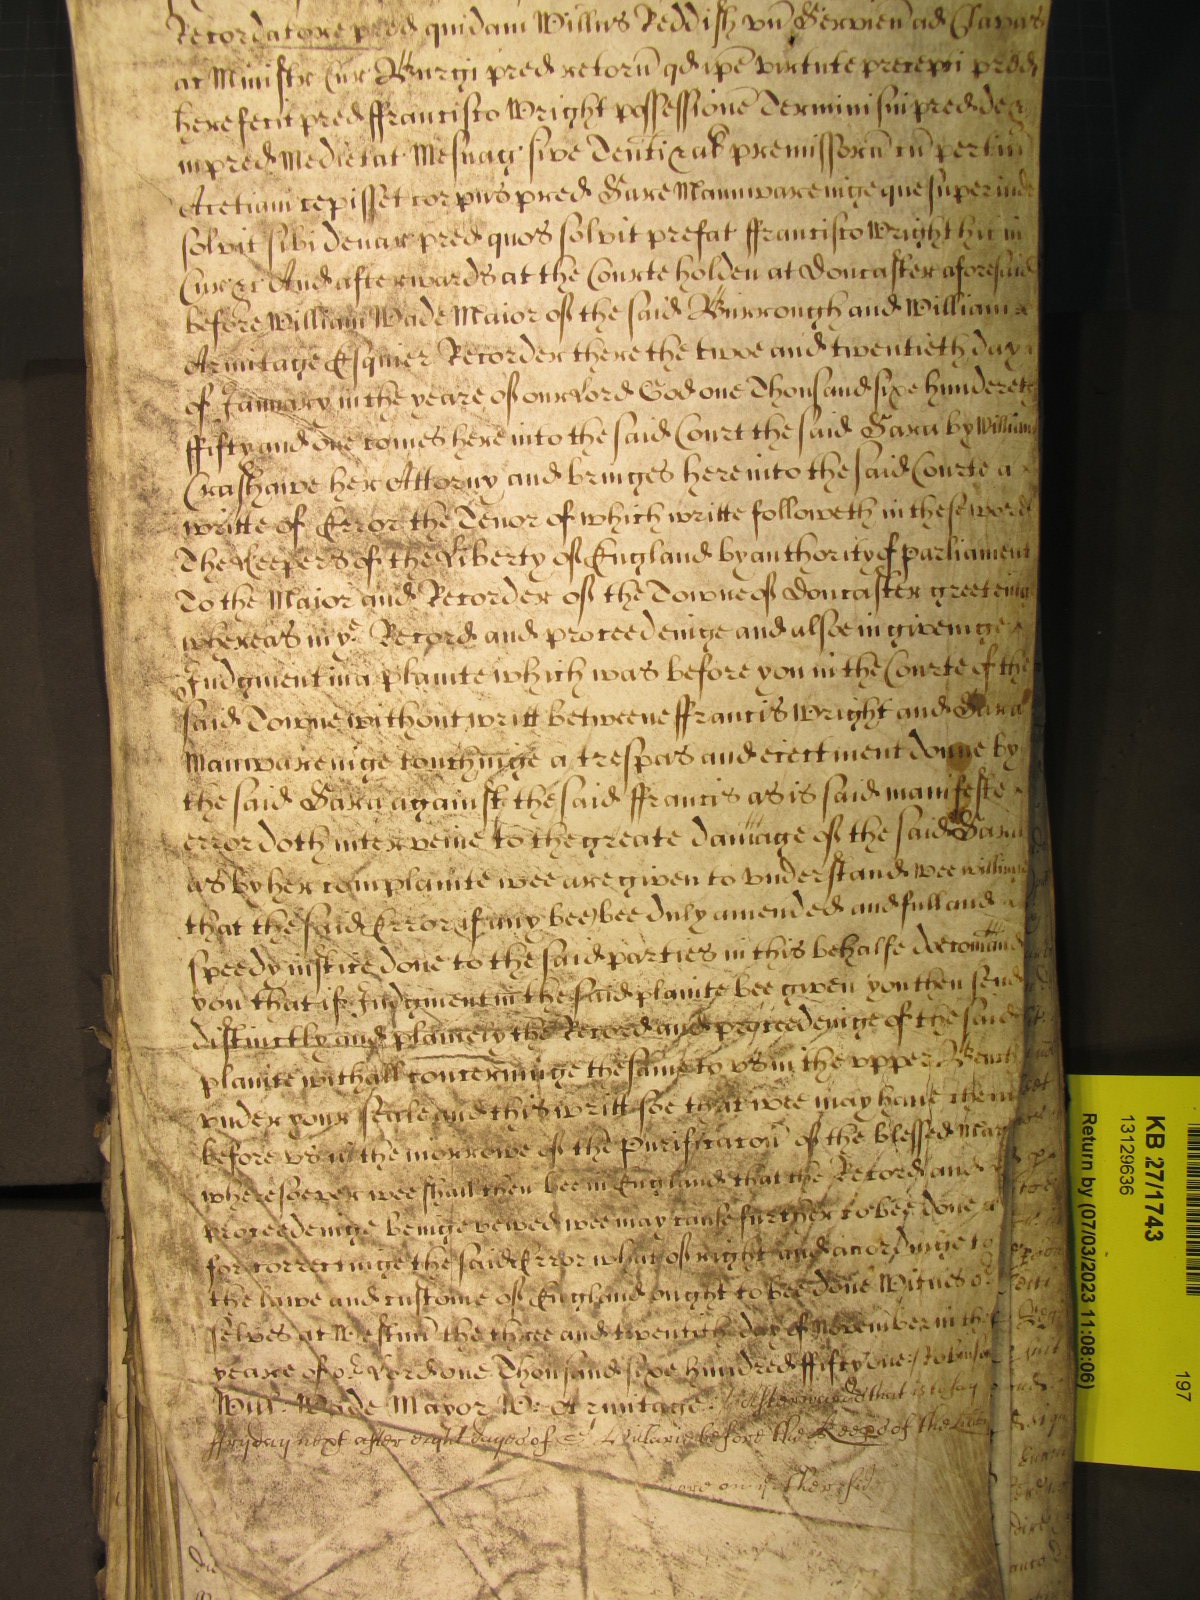 Recordatore pred quidam Willus Reddish un Servien ad Clavas
ac Ministr Cur Burgi pred retorn qd ipe virtute precepti pred
here fecit pred ffrancisco Wright possessione Termini sui pred de
in pred Medietat Mesuag sive Tenti ac premissoru cu pertin
Acetiam cepisset corpus pred Sare Mannwareinge que superinde
solvit sibi denar pred quos solvit prefat ffrancisco Wright hic in
Cur &c And afterwards at the Courte holden at Doncaster aforesaid
before William Wade Maior of the said Burrough and William
Armitage Esquier Recorder there the twoe and twentieth day
of January in the yeare of our Lord God one Thousand sixe hundereth
ffifty and one comes here into the said Court the said Sara by William
Crashawe her Attorny and bringes here into the said Courte a
writte of Error the Tenor of which writte followeth in these words
The Keepers of the Liberty of England by authority of parliament
To the Maior and Recorder of the Towne of Doncaster greeteing
whereas in ye Record and proceedeinge and alsoe in giveinge
Judgment in a plainte which was before you in the Courte of the
said Towne without writt betweene ffrancis Wright and Sara
Manwareinge touchinge a trespas and eiectment donne by
the said Sara against the said ffrancis as is said manifeste
error doth interveine to the greate damage of the said Sara
as by her complainte wee are given to understand wee willinge
that the said Error if any bee) bee duly amended and full and
speedy iustice done to the said parties in this behalfe doe comand
you that if Judgment in the said plainte bee given you then send
distinctly and plainely the Record and proceedeinge of the said
plainte with all concerninge the same to us in the upper Bench
under your seale and this writt soe that wee may have them
before us in the morrowe of the Purificacon of the blessed Mar
wheresoever wee shall then bee in England that the Record and
proceedeinge beinge vewed wee may cause further to bee done
for correctinge the said Error what of right and accordinge to
the lawe and custome of England ought to bee done Witnes or
selves at Westm the three and twentith day of November in the
yeare of or Lord one Thousand sixe hundred ffifty one: Robinson
Will: Wade Mayor W: Armitage Afterwards that is to say
ffryday next after eight dayes of St Hilarie before the Keeps of the Liberty
more on ye other side
KB 27/1743
13129636
Return by (07/03/2023 11:08:06)
197